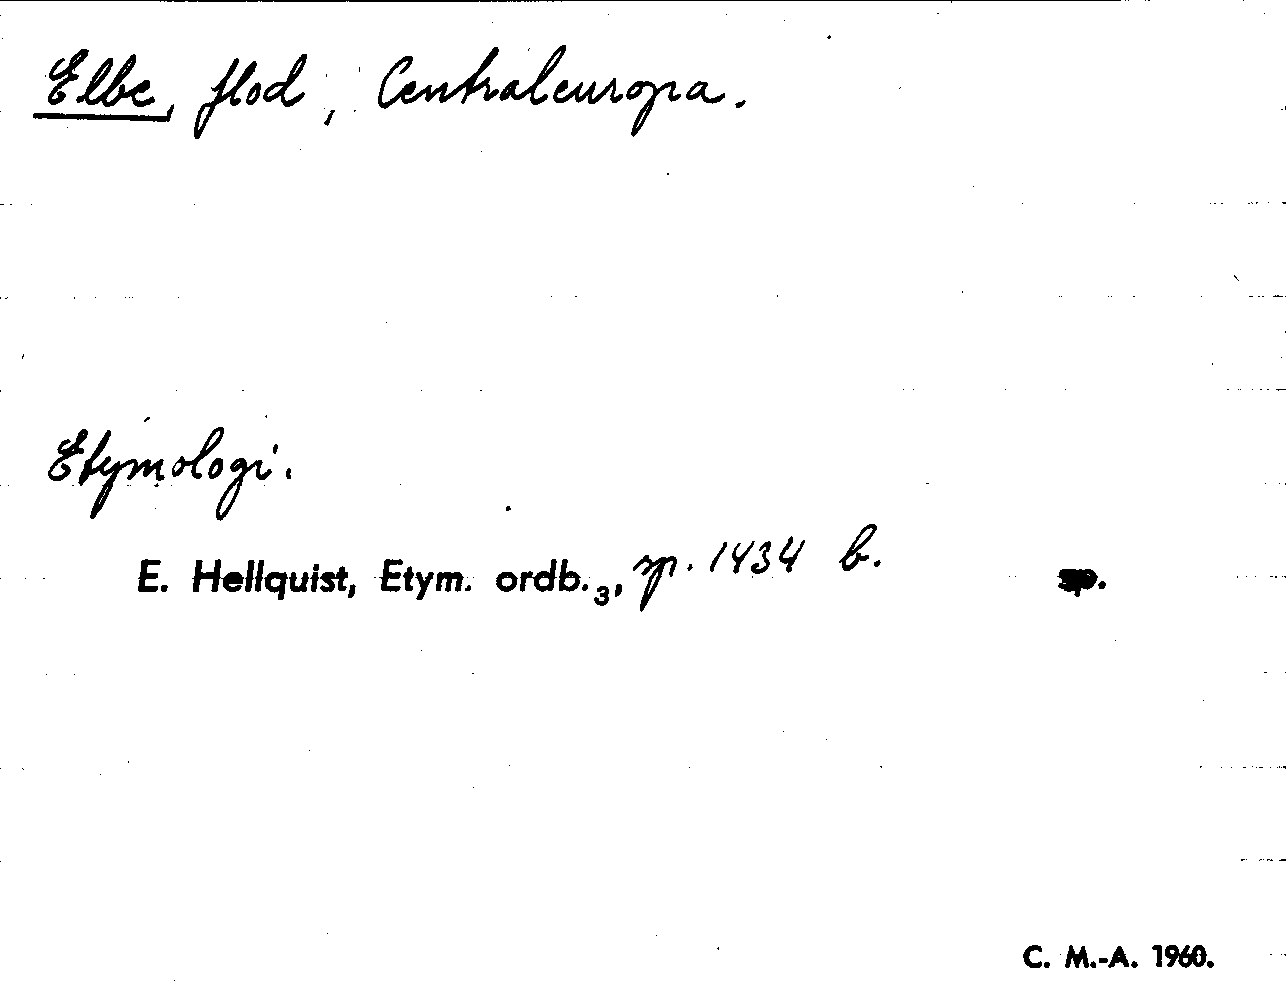 Elbe, flod, Centraleuropa.
Etymologi.
E. Hellquist, Etym. ordb.₃, sp. 1434 b. sp.
C. M.-A. 1960.